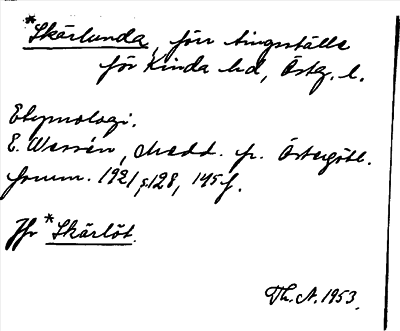 *Skärlunda, förr tingsställe
för Kinda hd, Östg. l.
Etymologi.
E. Wessén, Medd. fr. Östergötl.
fornm. 1921 s. 128, 145 f.
Jfr *Skärlöt.
Th. A. 1953.